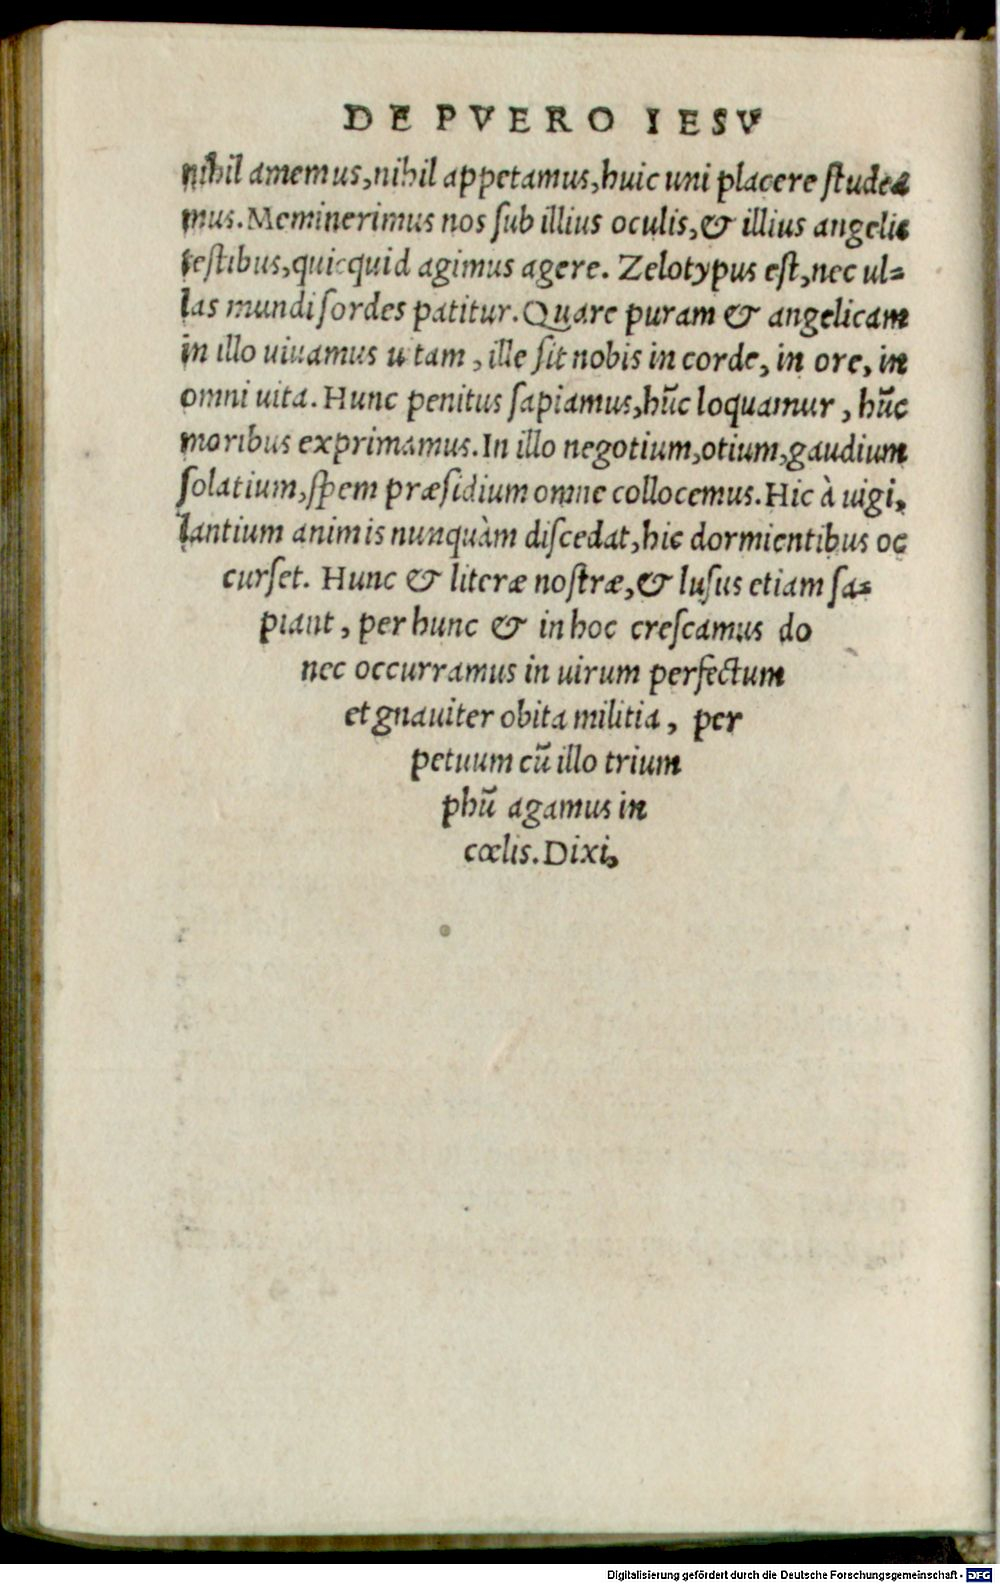 DE PVERO IESV
nihil amemus, nihil appetamus, huic uni placere studea
mus. Meminerimus nos sub illius oculis, & illius angelis
testibus, quicquid agimus agere. Zelotypus est, nec ul=
las mundi sordes patitur. Quare puram & angelicam
in illo uiuamus uitam, ille sit nobis in corde, in ore, in
omni uita. Hunc penitus sapiamus, hūc loquamur, hūc
moribus exprimamus. In illo negotium, otium, gaudium
solatium, spem præsidium omne collocemus. Hic à uigi,
lantium animis nunquàm discedat, hic dormientibus oc
curset. Hunc & literæ nostræ, & lusus etiam sa=
piant, per hunc & in hoc crescamus do
nec occurramus in uirum perfectum
et gnauiter obita militia, per
petuum cū illo trium
phū agamus in
cœlis. Dixi,
Digitalisierung gefördert durch die Deutsche Forschungsgemeinschaft - DFG